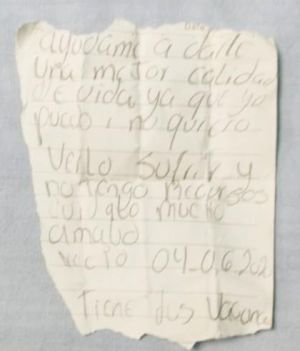 ayudame a darle
una mejor calidad
de vida ya que yo
puedo i no quiero
Verlo sufrir y
no tengo recursos
cuidalo mucho
amalo
Nacio 04-06-202
Tiene sus Vacuna